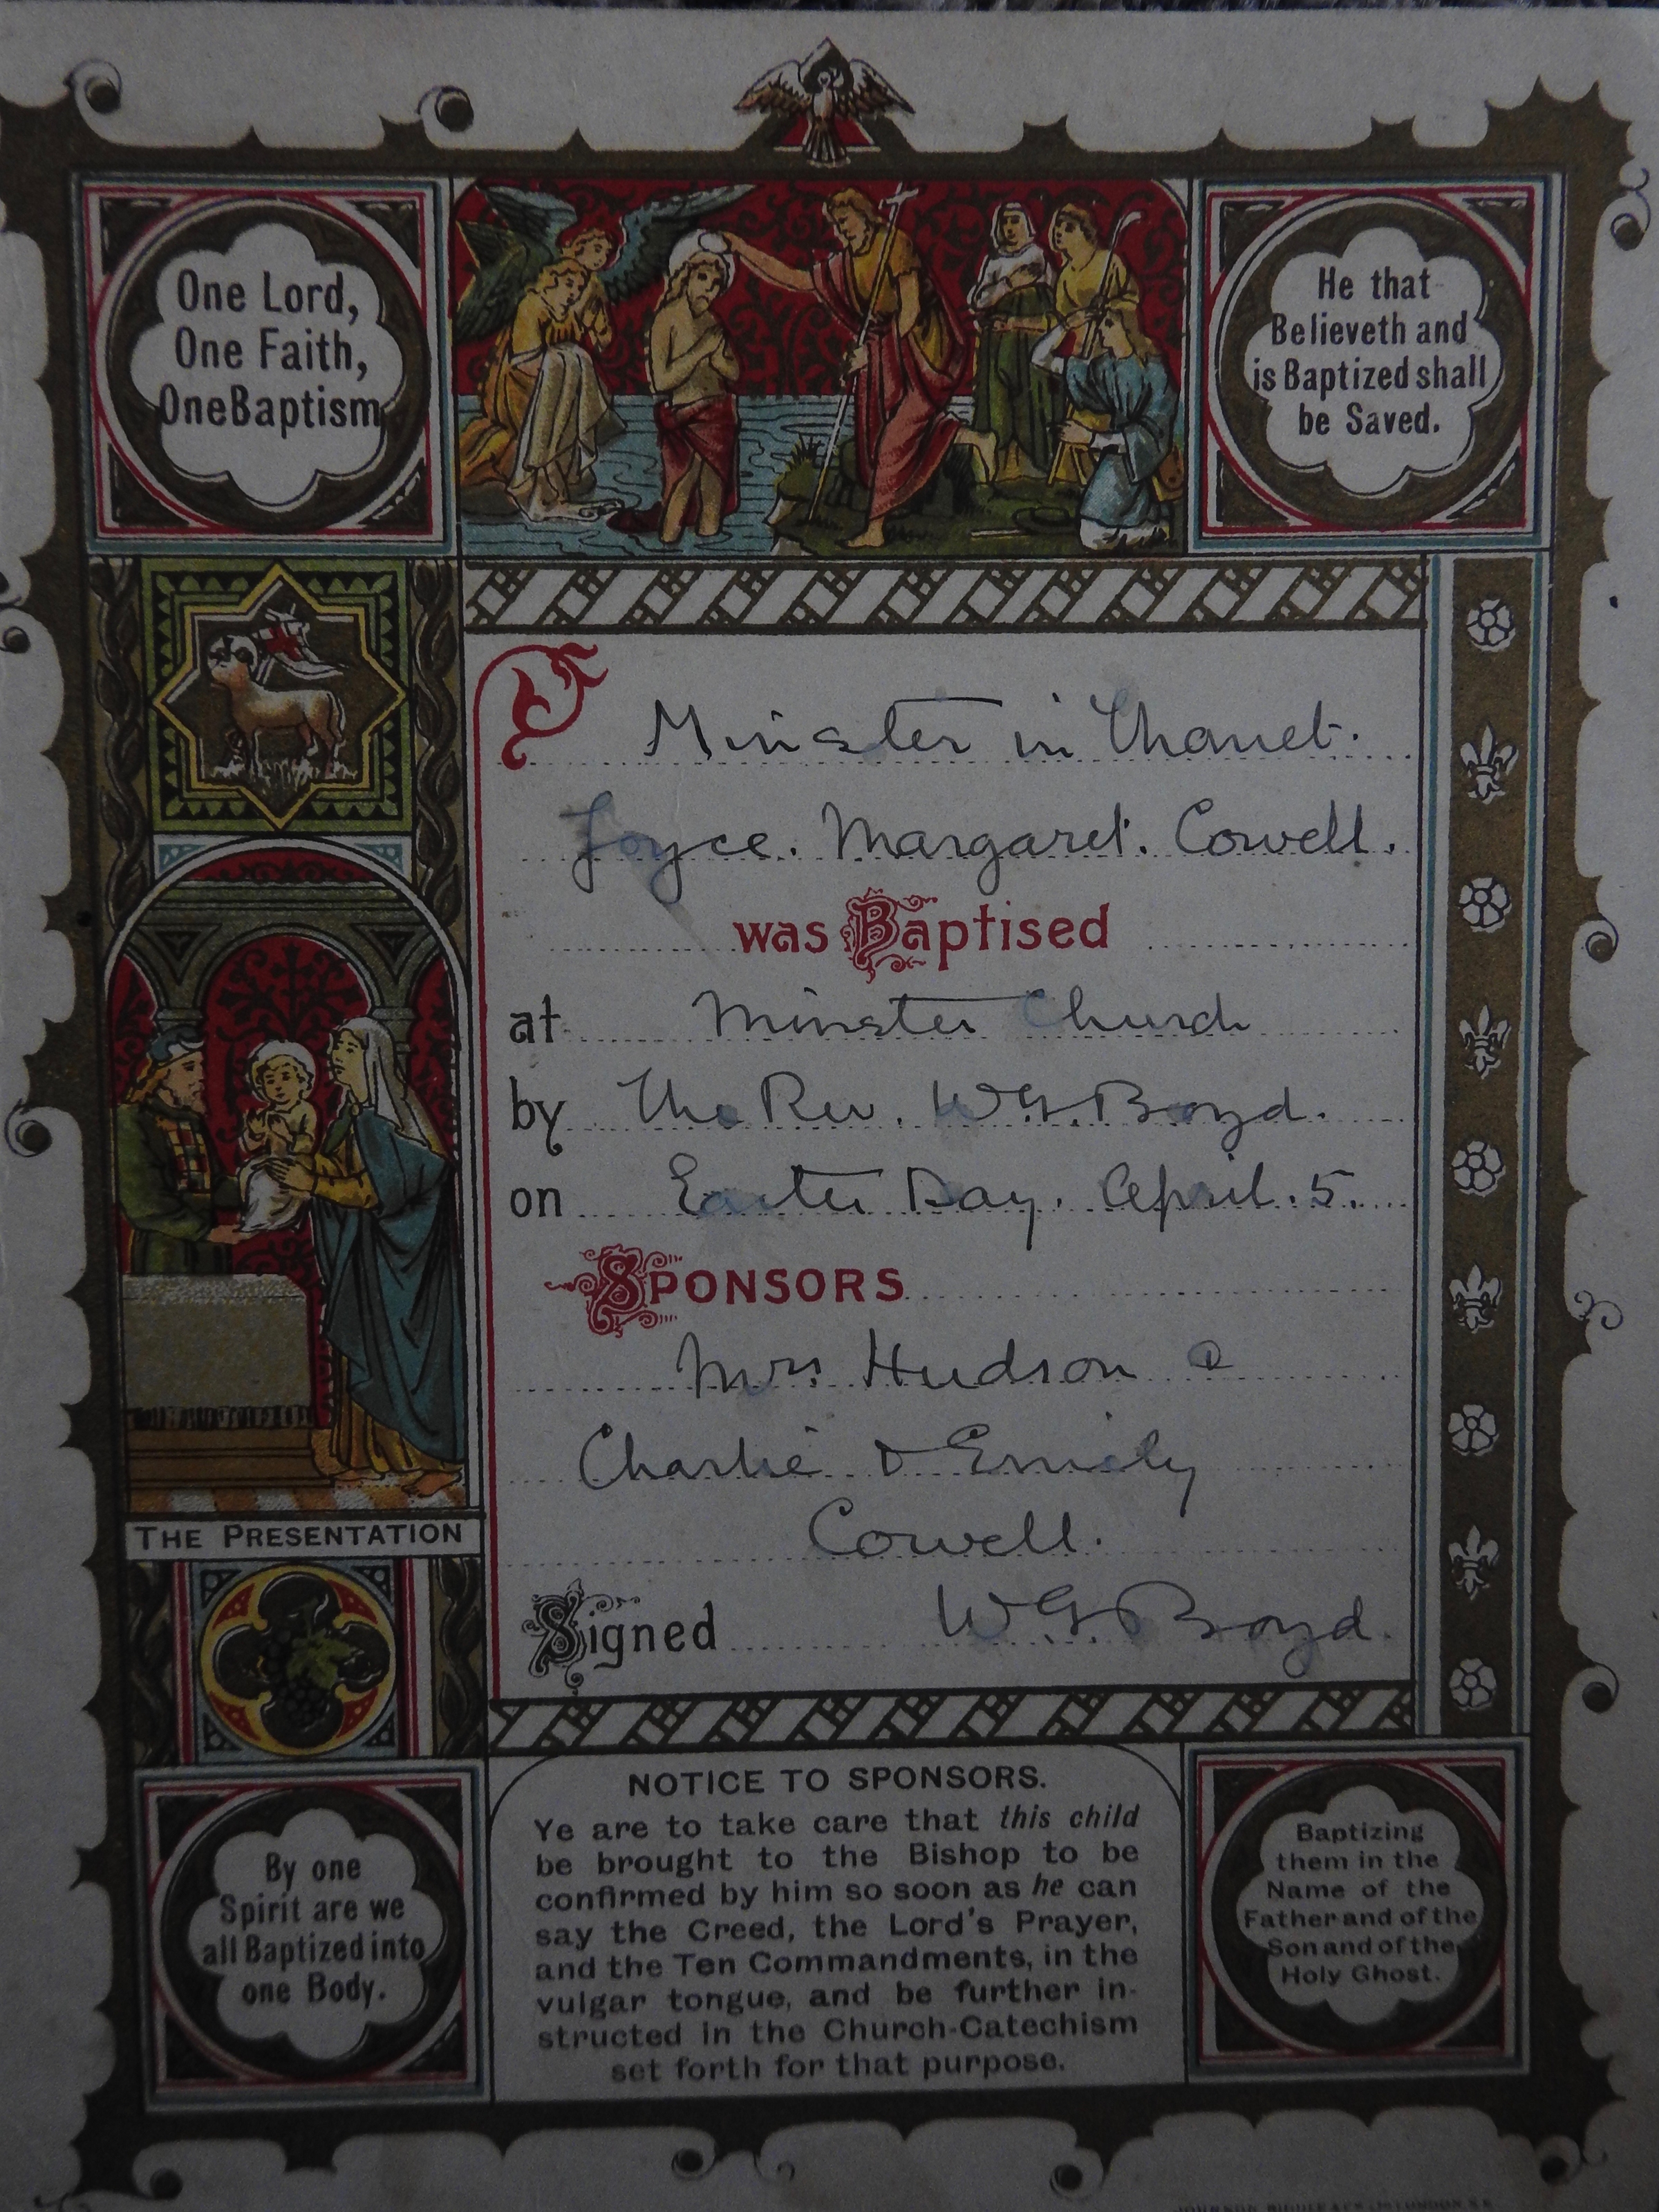 One Lord,
One Faith,
One Baptism
He that
Believeth and
is Baptized shall
be Saved.
Minster in Thanet.
Joyce. Margaret. Cowell.
was Baptised
at Minster Church
by The Rev. W.G. Boyd.
on Easter Day. April. 5.
SPONSORS
Mrs. Hudson
Charlie & Emily
Cowell.
Signed W.G. Boyd.
THE PRESENTATION
NOTICE TO SPONSORS.
Ye are to take care that this child
be brought to the Bishop to be
confirmed by him so soon as he can
say the Creed, the Lord's Prayer,
and the Ten Commandments, in the
vulgar tongue, and be further in-
structed in the Church-Catechism
set forth for that purpose.
By one
Spirit are we
all Baptized into
one Body.
Baptizing
them in the
Name of the
Father and of the
Son and of the
Holy Ghost.